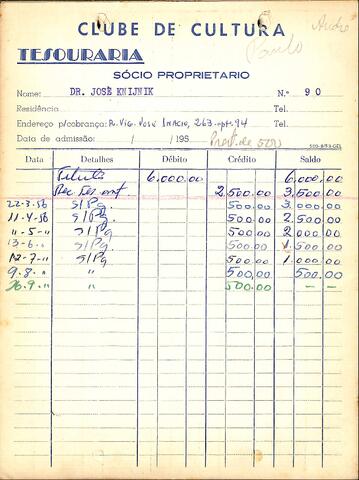 CLUBE DE CULTURA
André
Paulo
TESOURARIA
SÓCIO PROPRIETARIO
Nome: DR. JOSÉ KNIJNIK N.º 90
Residência Tel.
Endereço p/cobrança: R. Vig. José Inacio, 263-apt-94 Tel.
Data de admissão: / /195 Prest. de 500
500-8/53-GEL
Data Detalhes Débito Crédito Saldo
Titulo 6.000.00 6.000.00
Rec. 2.500.00 3.500.00
22-3-56 S/Pg 500.00 3.000.00
11-4-56 S/Pg. 500.00 2.500.00
"-5-" S/Pg 500.00 2.000.00
13-6-" S/Pg 500.00 1.500.00
12-7-" S/Pg 500.00 1.000.00
9.8." " 500.00 500.00
26.9." " 500.00 - -